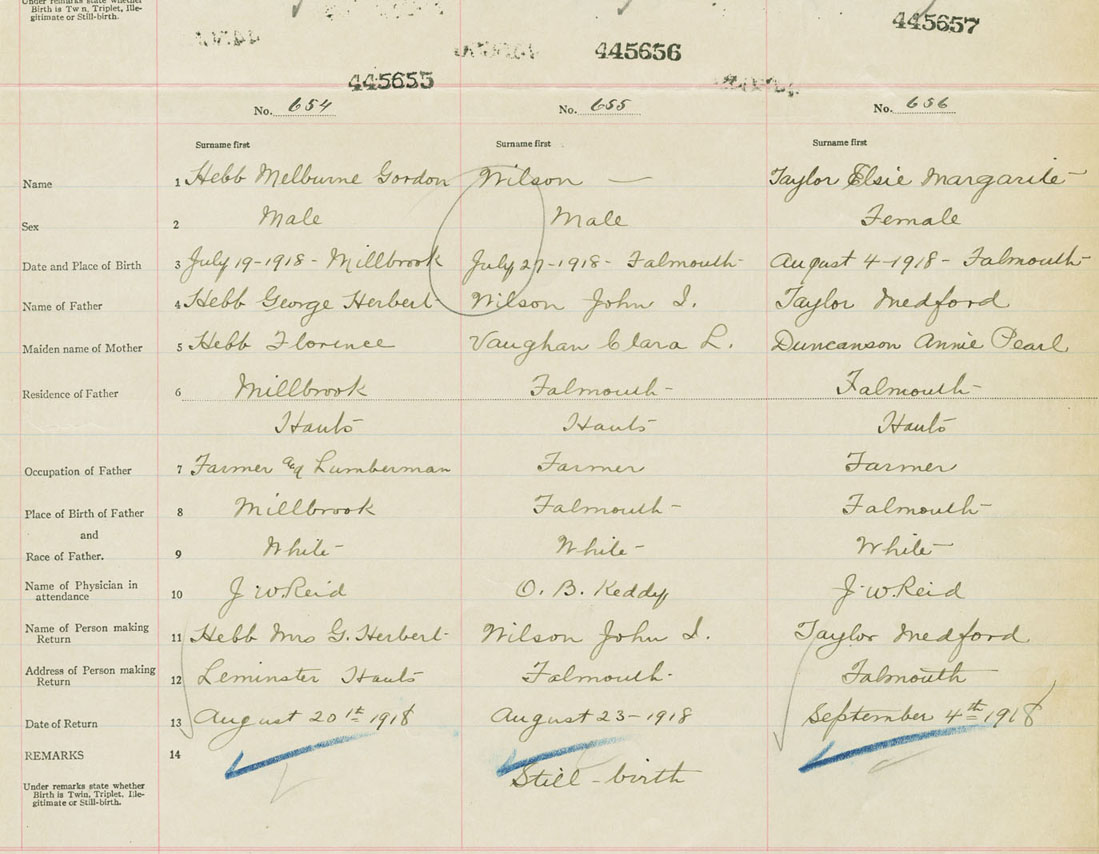 Under remarks state whether
Birth is Twin, Triplet, Ille-
gitimate or Still-birth.
445655 445656 445657
No. 654 No. 655 No. 656
Surname first Surname first Surname first
Name 1 Hebb Melburne Gordon Wilson — Taylor Elsie Margarite
Sex 2 Male Male Female
Date and Place of Birth 3 July 19-1918- Millbrook July 27-1918- Falmouth August 4-1918- Falmouth
Name of Father 4 Hebb George Herbert Wilson John I. Taylor Medford
Maiden name of Mother 5 Hebb Florence Vaughan Clara L. Duncanson Annie Pearl
Residence of Father 6 Millbrook Falmouth Falmouth
Hants Hants Hants
Occupation of Father 7 Farmer and Lumberman Farmer Farmer
Place of Birth of Father 8 Millbrook Falmouth Falmouth
and
Race of Father. 9 White White White
Name of Physician in
attendance 10 J. W. Reid O. B. Keddy J. W. Reid
Name of Person making
Return 11 Hebb Mrs G. Herbert Wilson John I. Taylor Medford
Address of Person making
Return 12 Leminster Hants Falmouth Falmouth
Date of Return 13 August 20th 1918 August 23-1918 September 4th 1918
REMARKS 14
Still-birth
Under remarks state whether
Birth is Twin, Triplet, Ille-
gitimate or Still-birth.